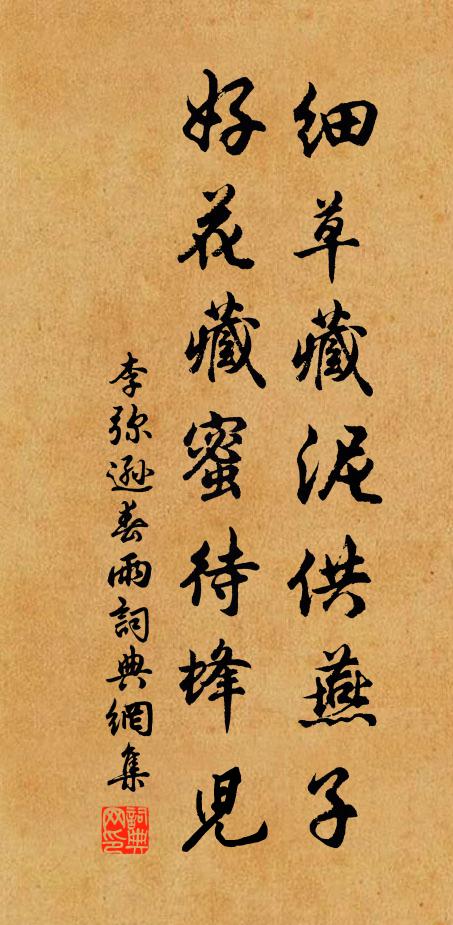 细草藏泥供燕子
好花藏蜜待蜂児
李弥遜春雨詞典網集
詞典网印